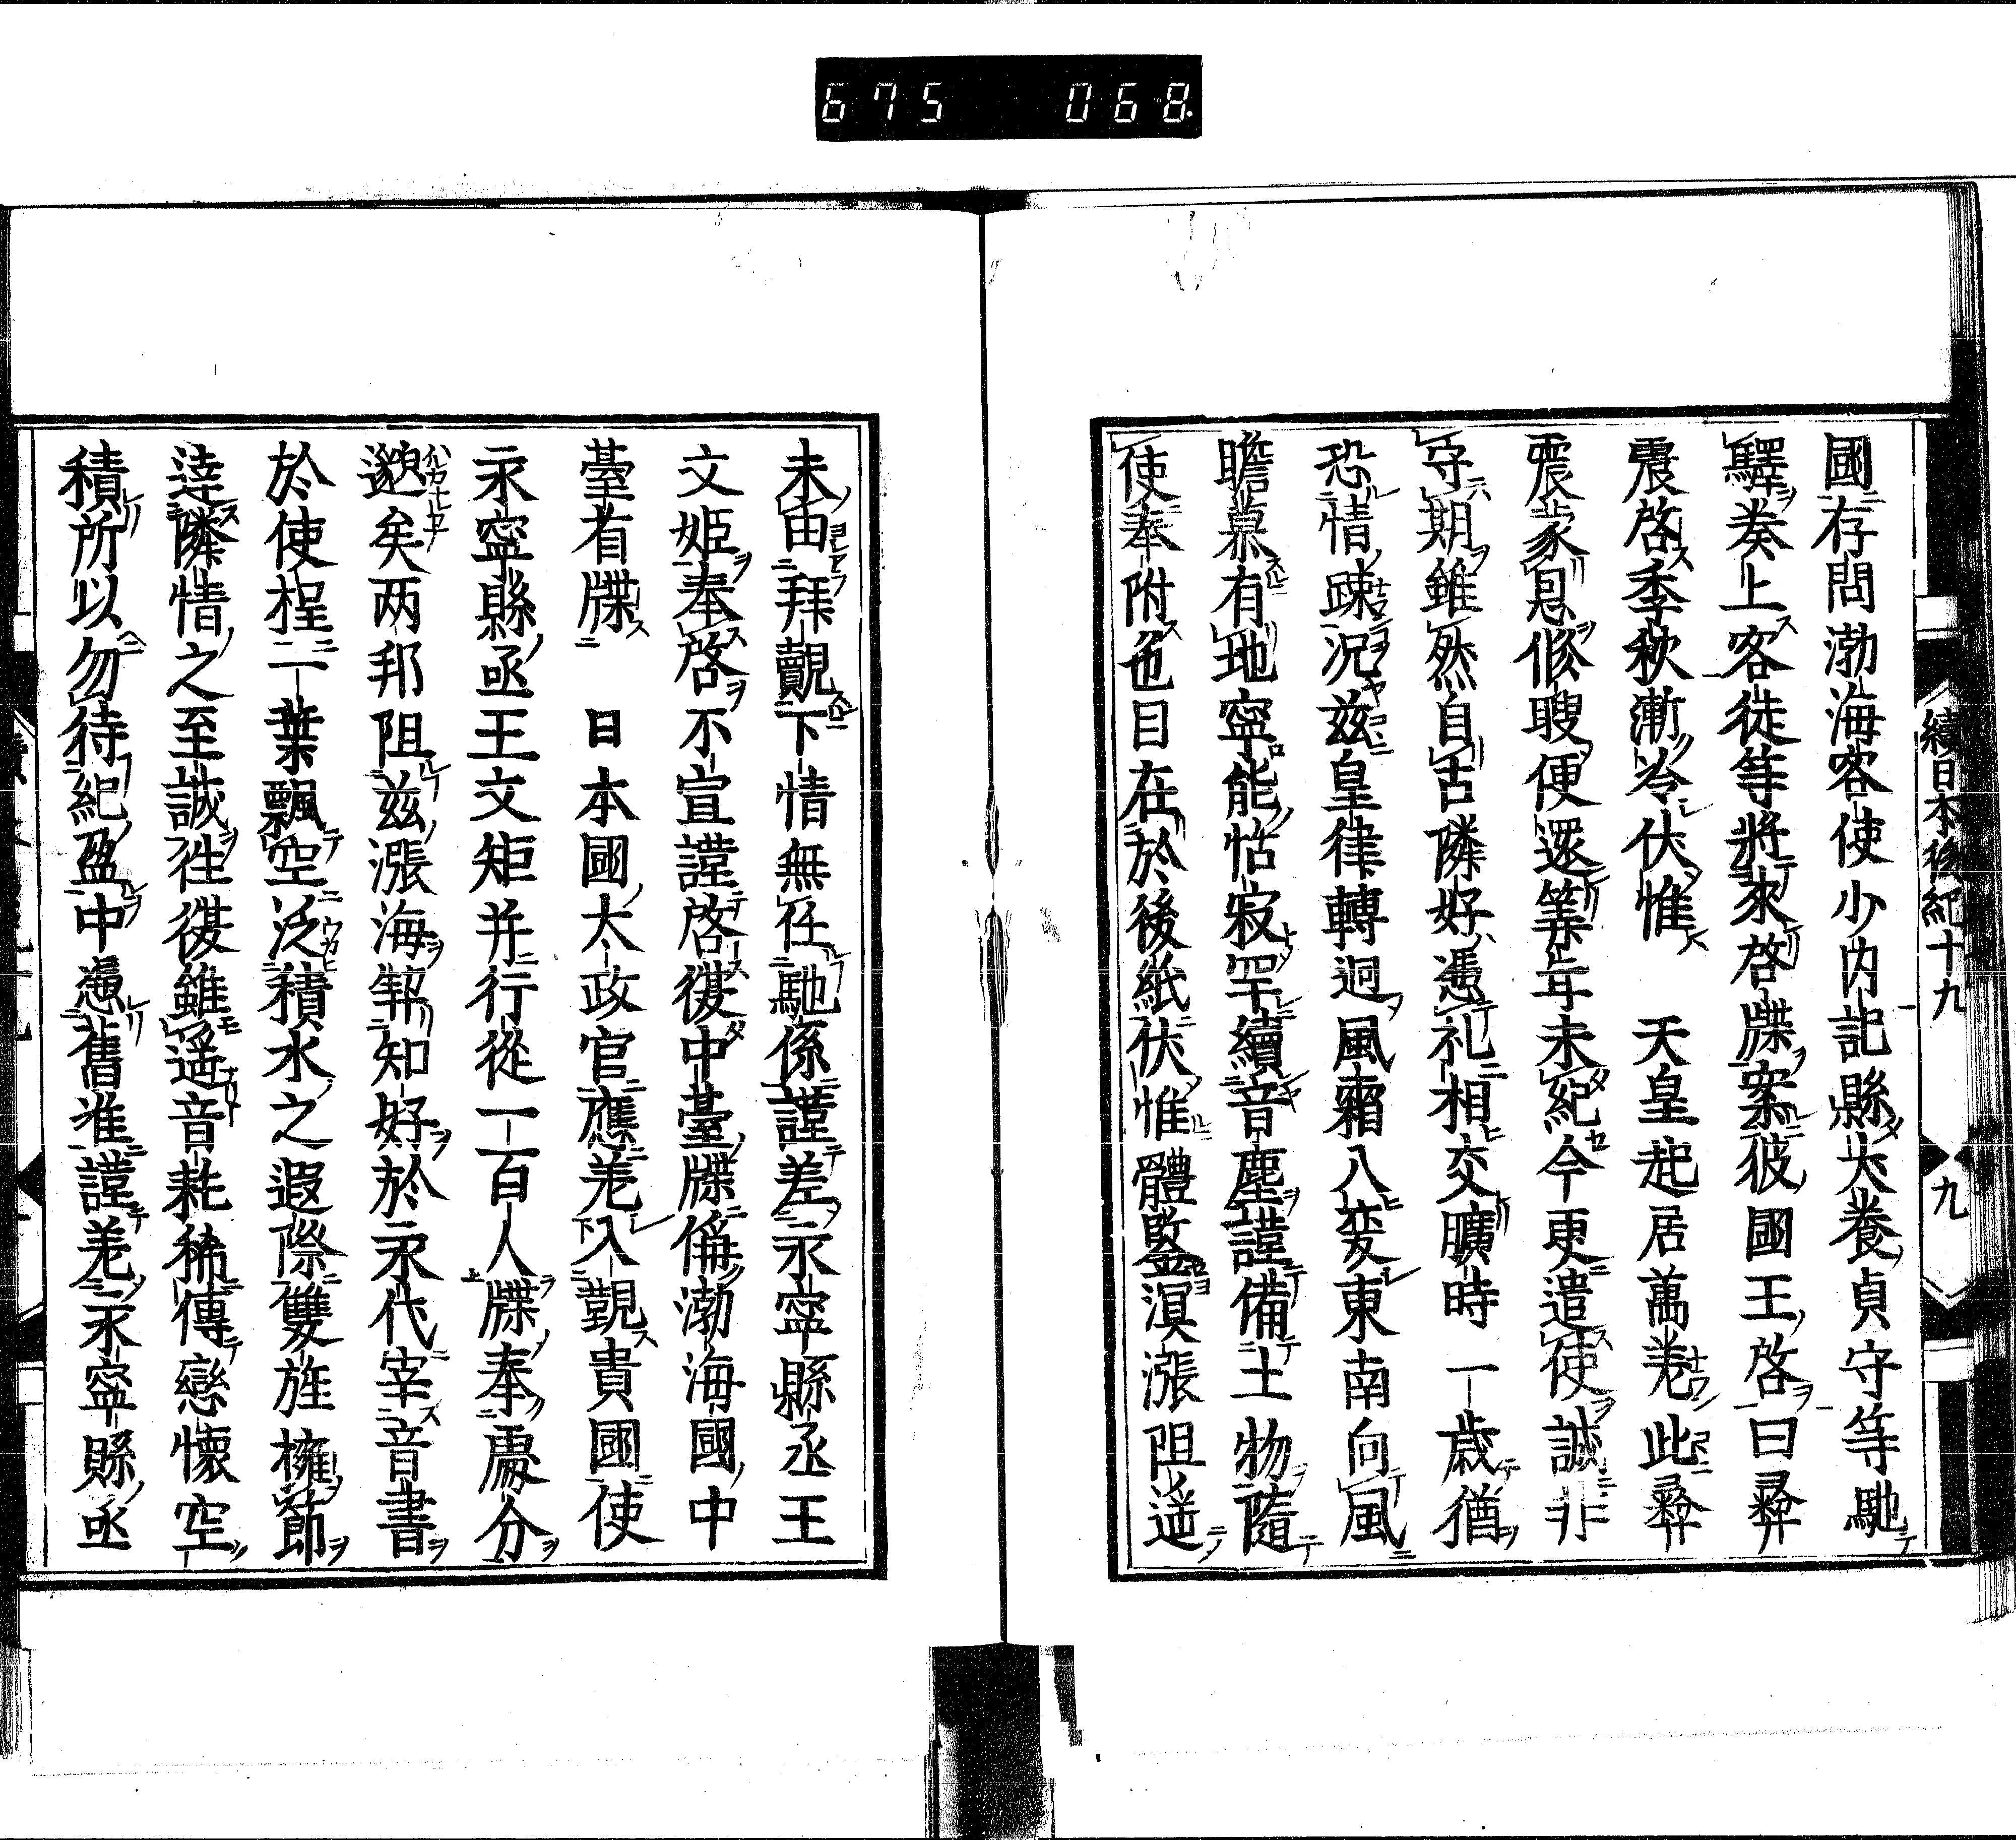 675 068
續日本後紀十九 九
國存問渤海客使少内記縣犬養貞守等馳
驛奏上客徒等將來啓牒案彼國王啓曰彛
震啓季秋漸冷伏惟 天皇起居萬羗此彛
震蒙恩修聘便還筭年未紀今更遣使誠非
守期雖然自古隣好憑礼相交曠時一歳猶
恐情疎况茲皇律轉迴風霜八变東南向風
瞻慕有地寧能恬寂罕續音塵謹備土物隨
使奉附色目在於後紙伏惟體鍳溟漲阻遥
未由拜覿下情無任馳係謹差永寧縣丞王
文姫奉啓不宣謹啓復中臺牒偁渤海國中
臺有牒 日本國太政官應差入覲貴國使
永寧縣丞王文矩并行從一百人牒奉處分
邈矣两邦阻茲漲海契知好於永代宰音書
於使程一葉飄空泛積水之遐際雙旌擁節
達隣情之至誠徃復雖遥音耗稀傳戀懷空
積所以勿待紀盈中憑舊准謹差永寧縣丞